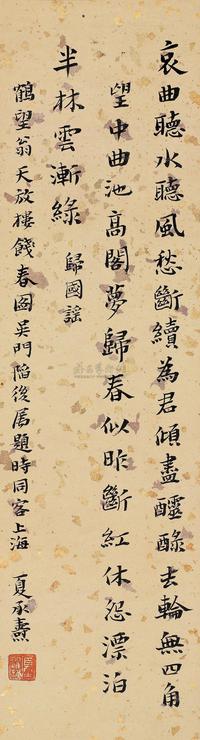 哀曲聽水聽風愁斷續為君傾盡醽醁去輪無四角
望中曲池高閣夢歸春似昨斷紅休怨漂泊
半林雲漸綠 歸國謠
鶴望翁天放樓餞春圖吳門陷後屬題時同客上海 夏承燾